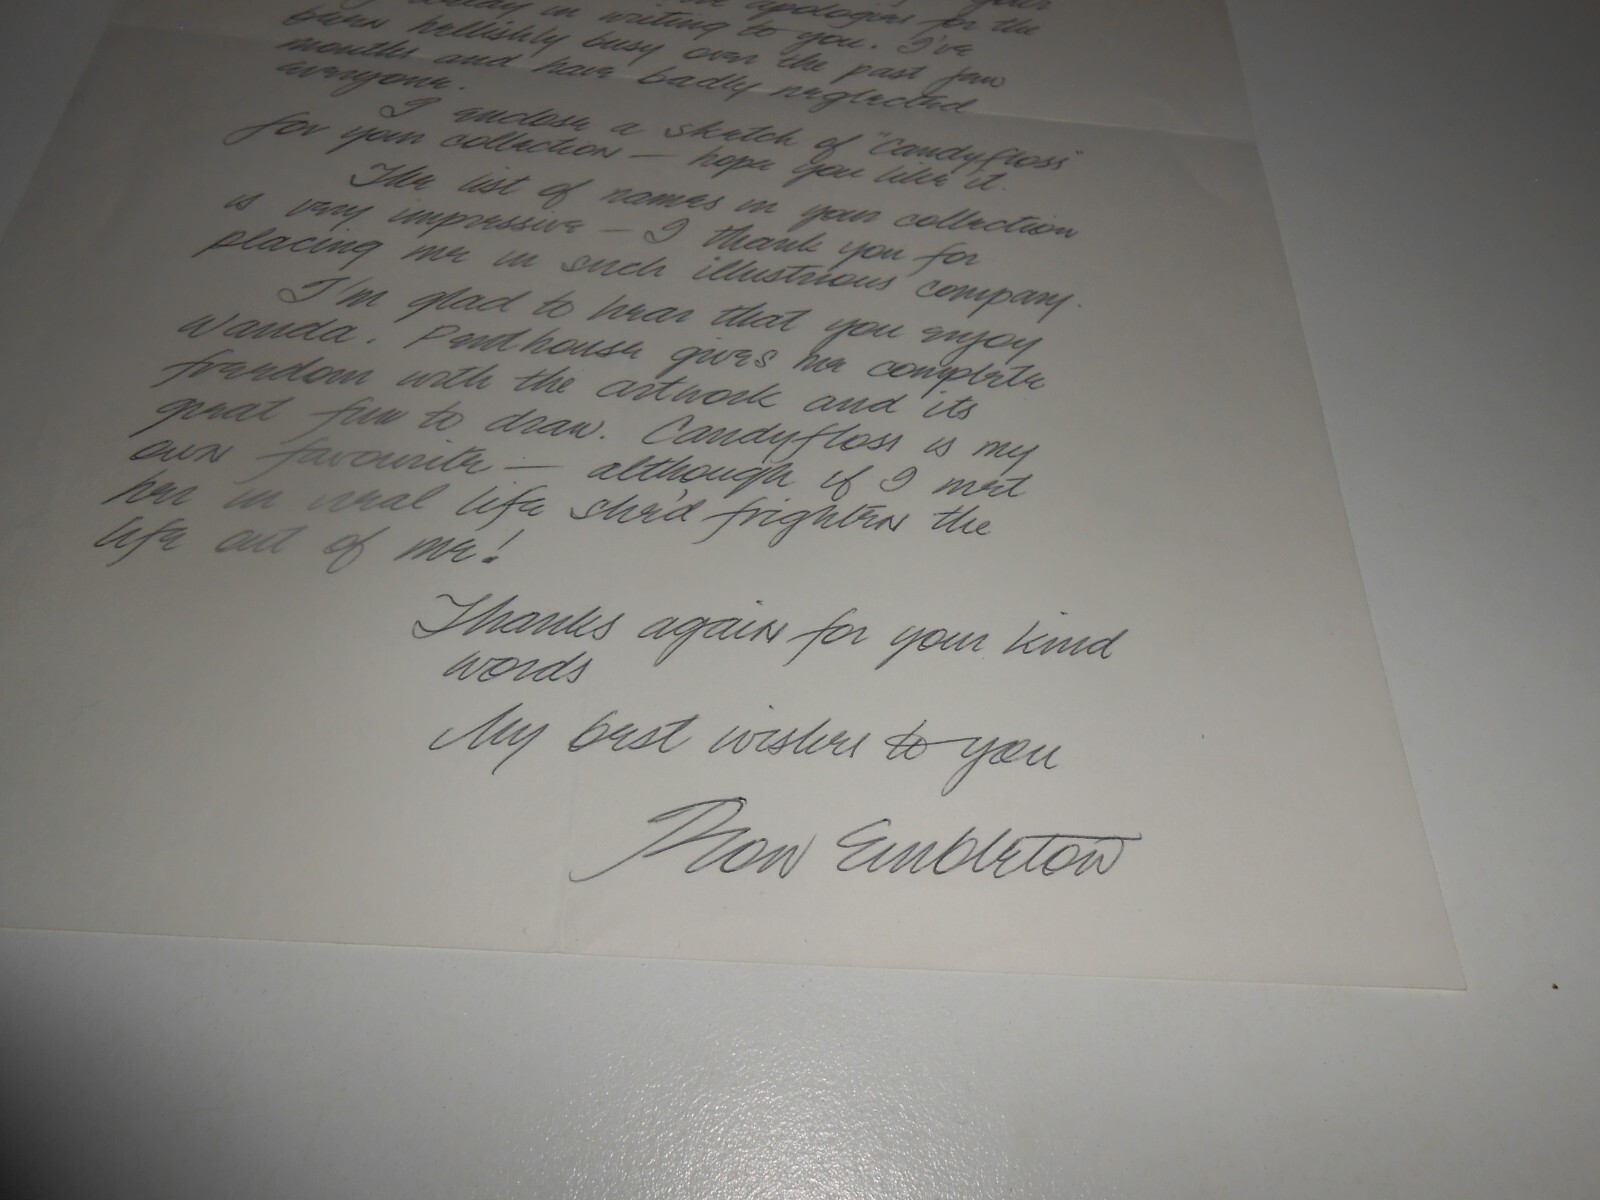 your
delay in writing to you. I've apologies for the
been hellishly busy over the past few
months and have badly neglected
everyone.
I enclose a sketch of "Candyfloss"
for your collection — hope you like it.
The list of names in your collection
is very impressive — I thank you for
placing me in such illustrious company.
I'm glad to hear that you enjoy
Wanda. Penthouse gives me complete
freedom with the artwork and its
great fun to draw. Candyfloss is my
own favourite — although if I met
her in real life she'd frighten the
life out of me!
Thanks again for your kind
words
My best wishes to you
Ron Embleton